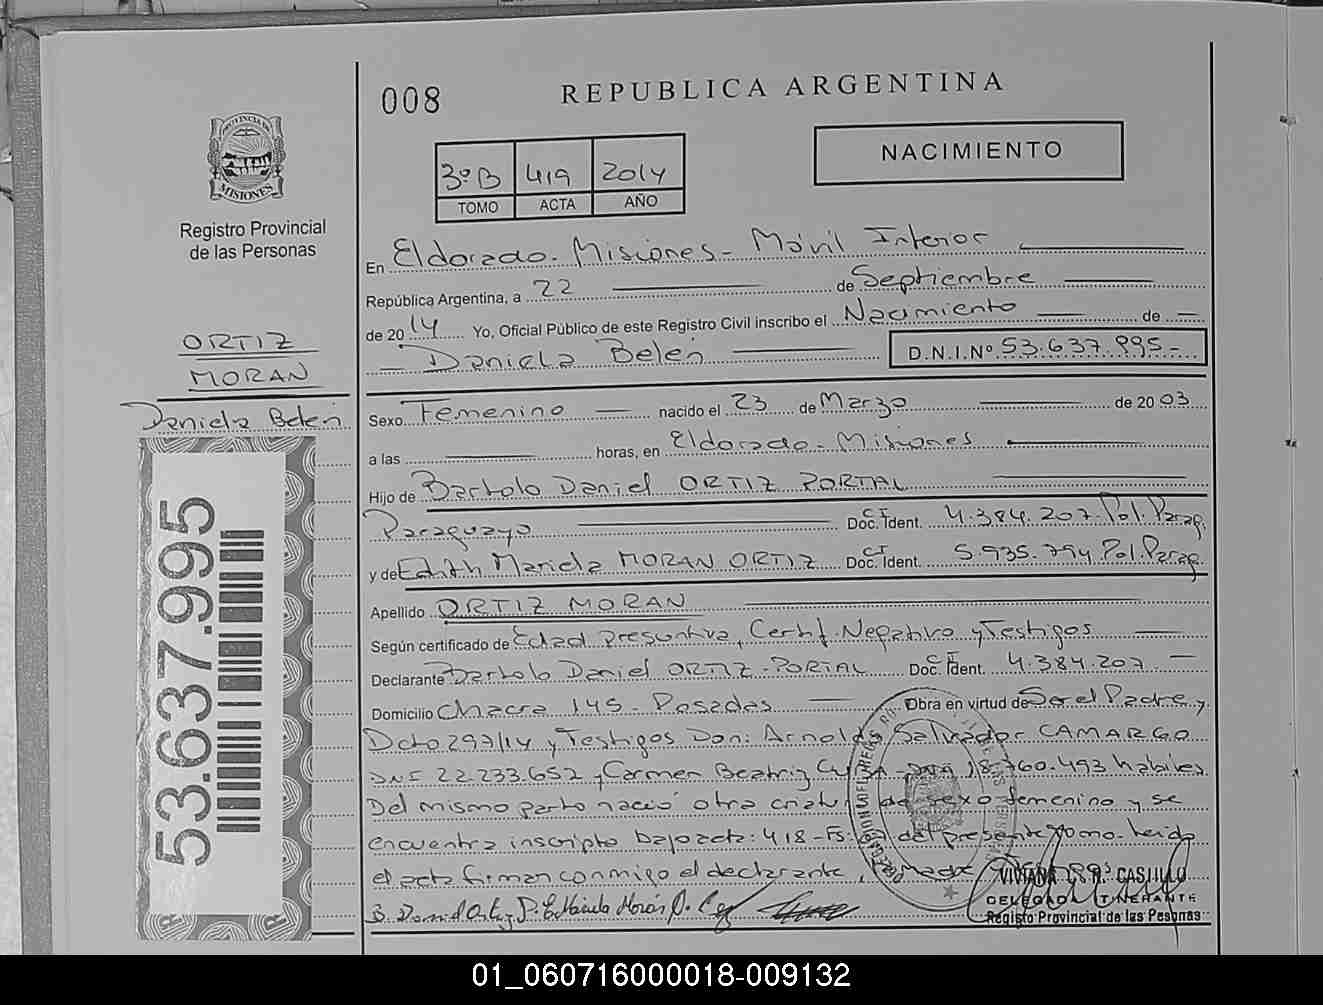 008
REPUBLICA ARGENTINA
PROVINCIA DE
MISIONES
Registro Provincial
de las Personas
3º B 419 2014
TOMO ACTA AÑO
NACIMIENTO
En Eldorado - Misiones - Móvil Interior
República Argentina, a 22 de Septiembre
de 2014 Yo, Oficial Público de este Registro Civil inscribo el Nacimiento de
Daniela Belen D.N.I.Nº 53.637.995-
ORTIZ
MORAN
Daniela Belen
Sexo Femenino nacido el 23 de Marzo de 2003
a las horas, en Eldorado - Misiones
Hijo de Bartolo Daniel ORTIZ PORTAL
Paraguayo Doc. Ident. CI 4.384.207-Pol.Parag.
y de Edith Mariela MORAN ORTIZ Doc. Ident. CI 5.935.794 Pol.Parag
Apellido ORTIZ MORAN
Según certificado de Edad presuntiva, Certif. Negativo y Testigos
Declarante Bartolo Daniel ORTIZ - PORTAL Doc. Ident. CI 4.384.207
Domicilio Chacra 145 - Posadas Obra en virtud de Ser el Padre y
Dcto 297/14 y Testigos Don: Arnoldo Salvador CAMARGO
DNI 22.233.652 y Carmen Beatriz DNI 18.760.493 habiles
Del mismo parto nació otra criatura de sexo femenino y se
encuentra inscripto bajo acta: 418 - Fs: del presente tomo - leida
el acta firman conmigo el declarante, madre
53.637.995
VIVIANA CASTILLO
DELEGADA ITINERANTE
Registro Provincial de las Personas
01_060716000018-009132